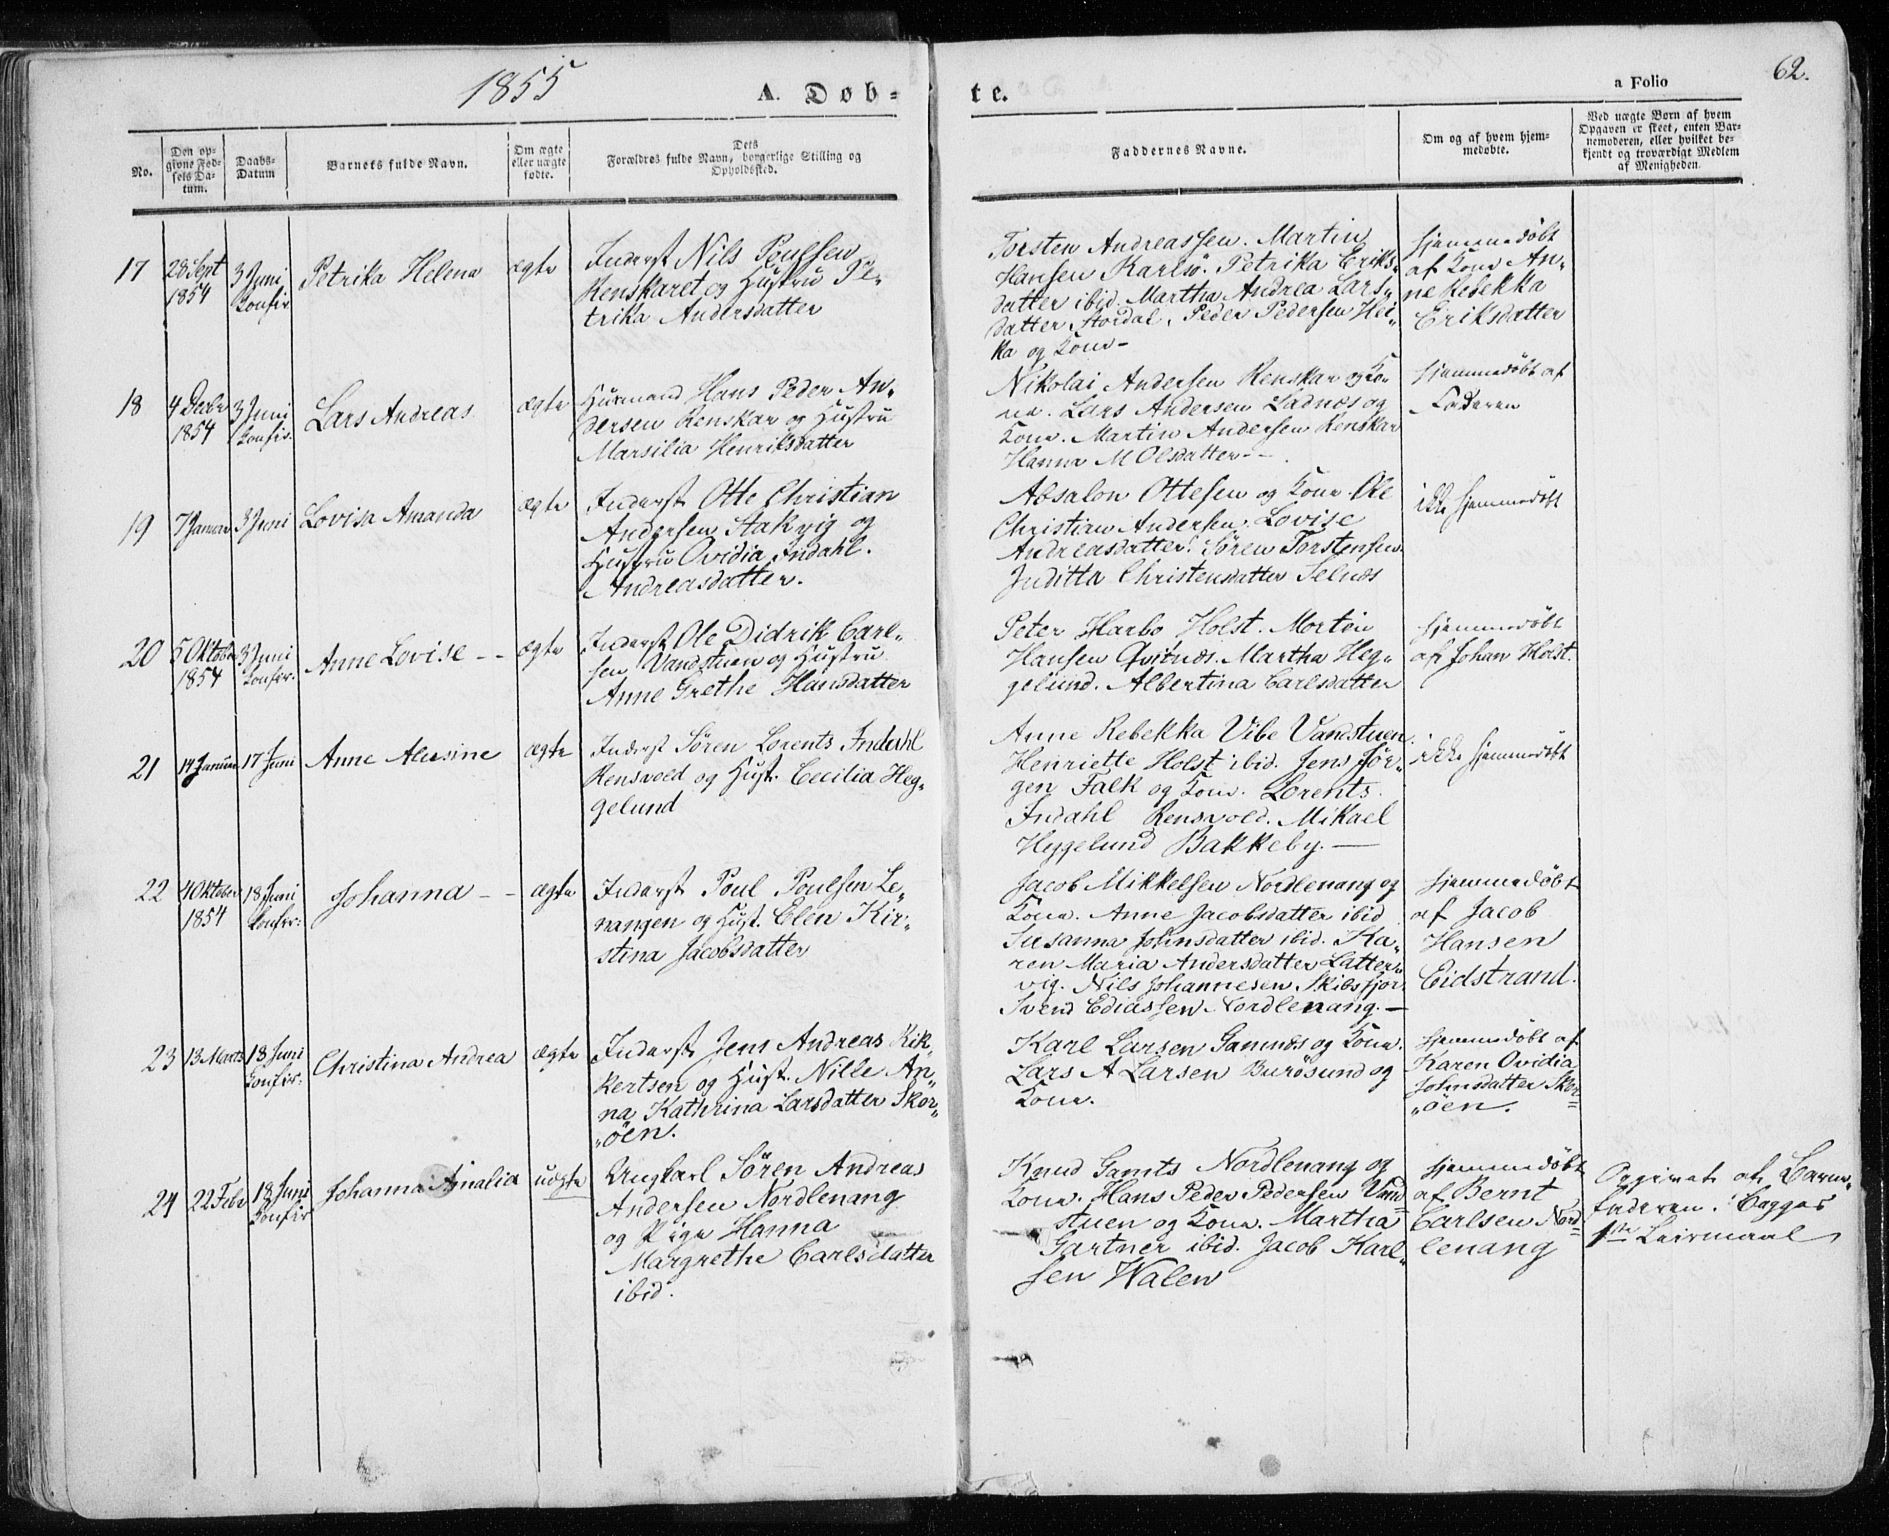 1855
A. Døb-
te.
a Folio
62.
No.
Den op-
givne Fød-
sels Da-
tum.
Daabs-
Datum
Barnets fulde Navn.
Om ægte
eller uægte
fødte.
Dets
Forældres fulde Navn, borgerlige Stilling og
Opholdssted.
Faddernes Navne.
Om og af hvem hjem-
medøbte.
Ved uægte Børn af hvem
Opgaven er skeet, enten Bar-
nemoderen, eller hvilket be-
kjendt og troværdigt Medlem
af Menigheden.
17
28 Sept
1854
3 Juni
Confir
Petrika Helena
ægte
Inderst Nils Poulsen
Renskaret og Hustru Pe-
trika Andersdatter
Torsten Andreassen. Martin
Hansen Karlsö. Petrika Eriks-
datter ibid. Martha Andrea Lars-
datter Stordal. Peder Pedersen Hei-
ka og Kone -
Hjemmedøbt
af Kone An-
ne Rebekka
Eriksdatter
18
4 Decbr
1854
3 Juni
Confir.
Lars Andreas
ægte
Husmand Hans Peder An-
dersen Renskar og Hustru
Marsilia Henriksdatter
Nikolai Andersen Renskar og Ko-
ne. Lars Andersen Ladnæs og
Kone. Martin Andersen Renskar
Hanna M Olsdatter - -
Hjemmedøbt af
Faderen
19
7 Januar
3 Juni
Lovisa Amanda
ægte
Inderst Otto Christian
Andersen Stakvig og
Hustru Ovidia Indahl.
Andreasdatter.
Absalon Ottesen og Kone. Ole
Christian Andersen. Lovise
Andreasdatter. Søren Torstensen
Juditta Christensdatter Selnæs
ikke hjemmedøbt
20
5 Oktober
1854
3 Juni
Confir.
Anne Lovise - -
ægte
Inderst Ole Didrik Carl-
sen Vandstuen og Hustru
Anne Grethe Hansdatter
Peter Harbo Holst. Morten
Hansen Qvitnæs. Martha Heg-
gelund. Albertina Carlsdatter
Hjemmedøbt
af Johan Holst.
21
14 Januar
17 Juni
Anne Alusine
ægte
Inderst Søren Lorents Indahl
Rensvold og Hust. Cecilia Heg-
gelund
Anne Rebekka Vibe Vandstuen
Henriette Holst ibid. Jens Jør-
gen Falk og Kone. Lorents
Indahl Rensvold. Mikael
Heggelund Bakkeby. —
ikke hjemmedøbt
22
4 Oktober
1854
18 Juni
Confir:
Johanna - -
ægte
Inderst Poul Poulsen Le-
nangen og Hust. Elen Kir-
stina Jacobsdatter
Jacob Mikkelsen Nordlenang og
Kone. Anne Jacobsdatter ibid
Susanna Johnsdatter ibid. Ka-
ren Maria Andersdatter Latter-
vig. Nils Johannesen Skibsfjor.
Svend Ediassen Nordlenang. —
Hjemmedøbt
af Jacob
Hansen
Eidstrand.
23
13 Marts
18 Juni
Confir:
Christina Andrea
ægte
Inderst Jens Andreas Rik-
kertsen og Hust. Nille An-
na Kathrina Larsdatter Skor-
„öen.
Karl Larsen Gamnæs og Kone.
Lars A Larsen Burösund og
Kone.
Hjemmedøbt af
Karen Ovidia
Johnsdatter Skor=
„öen.
24
22 Febr
18 Juni
Confir
Johanna Amalia
uægte
Ungkarl Søren Andreas
Andersen Nordlenang
og Pige Hanna
Margrethe Carlsdatter
ibid.
Knud Gamts Nordlenang og
Kone. Hans Peder Pedersen Vand
stuen og Kone. Martha
Gartner ibid. Jacob Karl-
sen Walen
Hjemmedøbt
af Bernt
Carlsen Nord=
lenang
Opgivet af Barne-
faderen. Begges
1ste Leiermaal